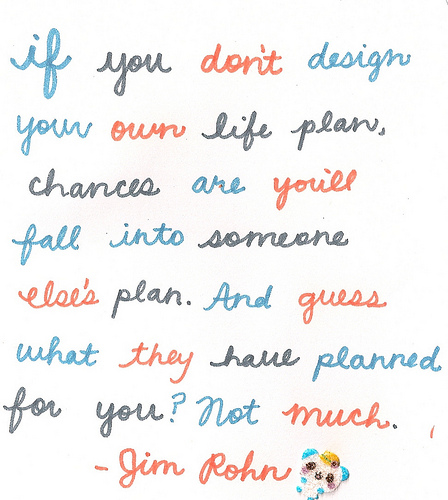 if you don't design
your own life plan,
chances are you'll
fall into someone
else's plan. And guess
what they have planned
for you? Not much.
- Jim Rohn